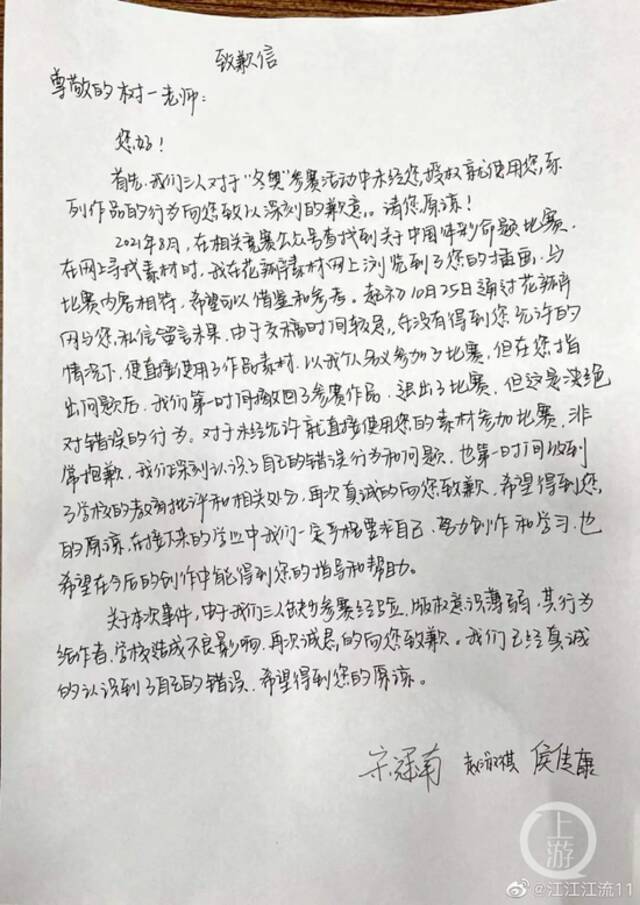 致歉信
尊敬的树一老师：
您好！
首先，我们三人对于“冬奥”参赛活动中未经您授权就使用您系
列作品的行为向您致以深刻的歉意。请您原谅！
2021年8月，在相关竞赛公众号查找到关于中国体彩命题比赛，
在网上寻找素材时，我在花瓣素材网上浏览到了您的插画，与
比赛内容相符，希望可以借鉴和参考。起初10月25日通过花瓣
网与您私信留言未果，由于交稿时间较急，在没有得到您允许的
情况下，便直接使用了作品素材，以我个人名义参加了比赛，但在您指
出问题后，我们第一时间撤回了参赛作品，退出了比赛，但这是决绝
对错误的行为。对于未经允许就直接使用您的素材参加比赛，非
常抱歉，我们深刻认识了自己的错误行为和问题，也第一时间收到
了学校的教育批评和相关处分，再次真诚的向您致歉，希望得到您
的原谅，在接下来的学业中我们一定严格要求自己，努力创作和学习，也
希望在今后的创作中能得到您的指导和帮助。
关于本次事件，由于我们三人缺少参赛经验，版权意识薄弱，其行为
给作者、学校造成不良影响，再次诚恳的向您致歉。我们已经真诚
的认识到了自己的错误，希望得到您的原谅。
宋冠南 祺 侯传康
上游
@江江江流11